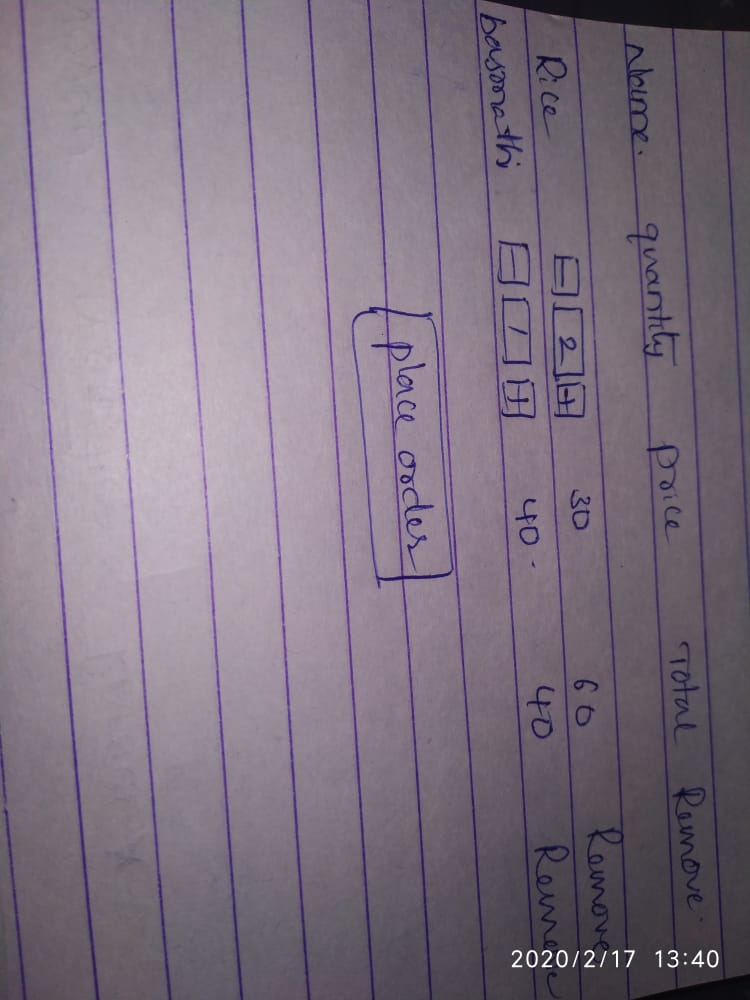 Name. quantity price Total Remove.
Rice - 2 + 30 60 Remove
basmathi - 1 + 40. 40 Remove
place order
2020/2/17 13:40